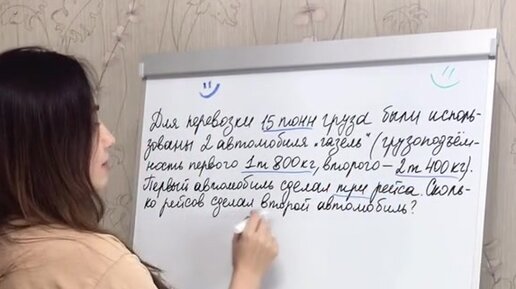 Для перевозки 15 тонн груза были исполь-
зованы 2 автомобиля "газель" (грузоподъём-
ность первого 1т 800кг, второго – 2т 400кг).
Первый автомобиль сделал три рейса. Сколь-
ко рейсов сделал второй автомобиль?